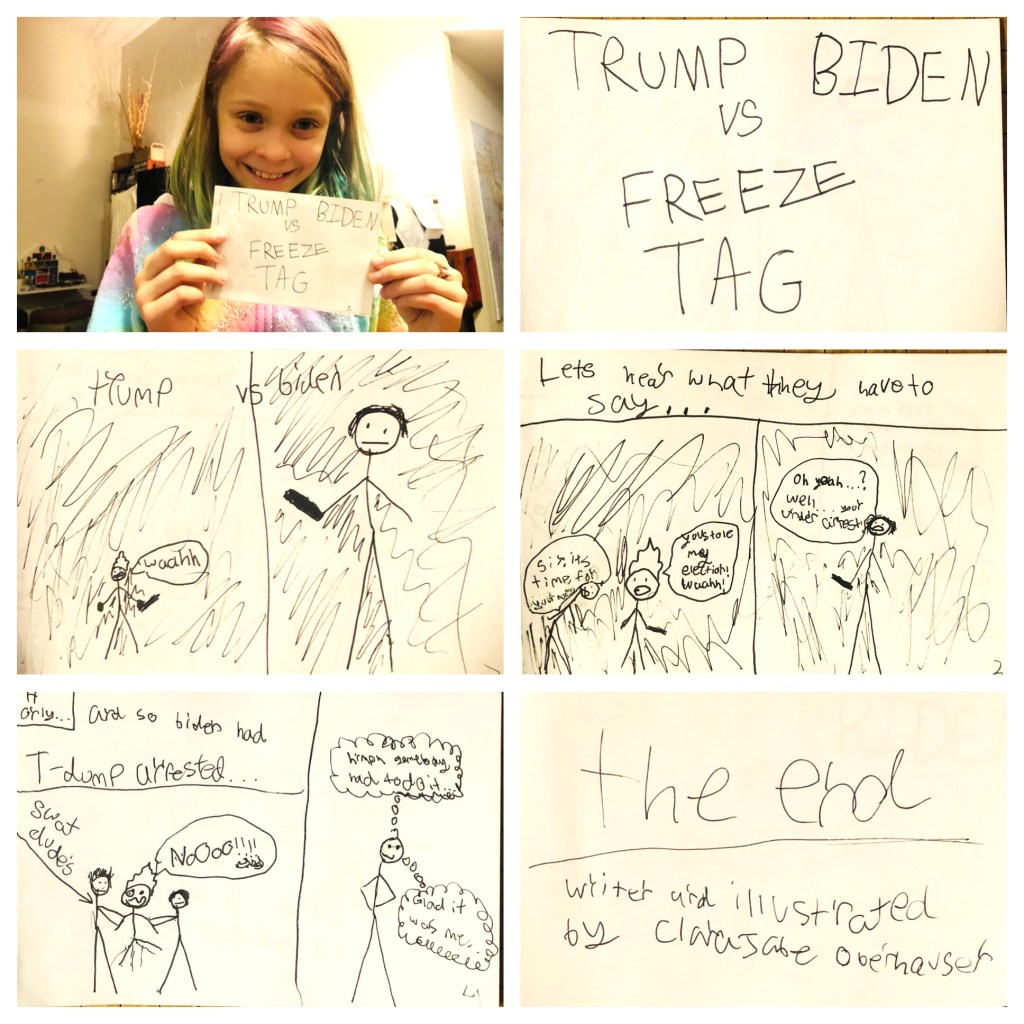 TRUMP BIDEN
VS
FREEZE
TAG
TRUMP BIDEN
VS
FREEZE
TAG
trump vs biden
waahh
Lets hear what they have to
say...
Sir its
time for
your
you stole
my
election!
waahh!
Oh yeah...?
well... your
under arrest!
2
orly...
and so biden had
T-dump arrested...
swat
dude's
NoOoo!!!!
hmph somebody
had to do it...
Glad it
was me.
4
the end
writer and illustrated
by Clarasabe Oberhauser